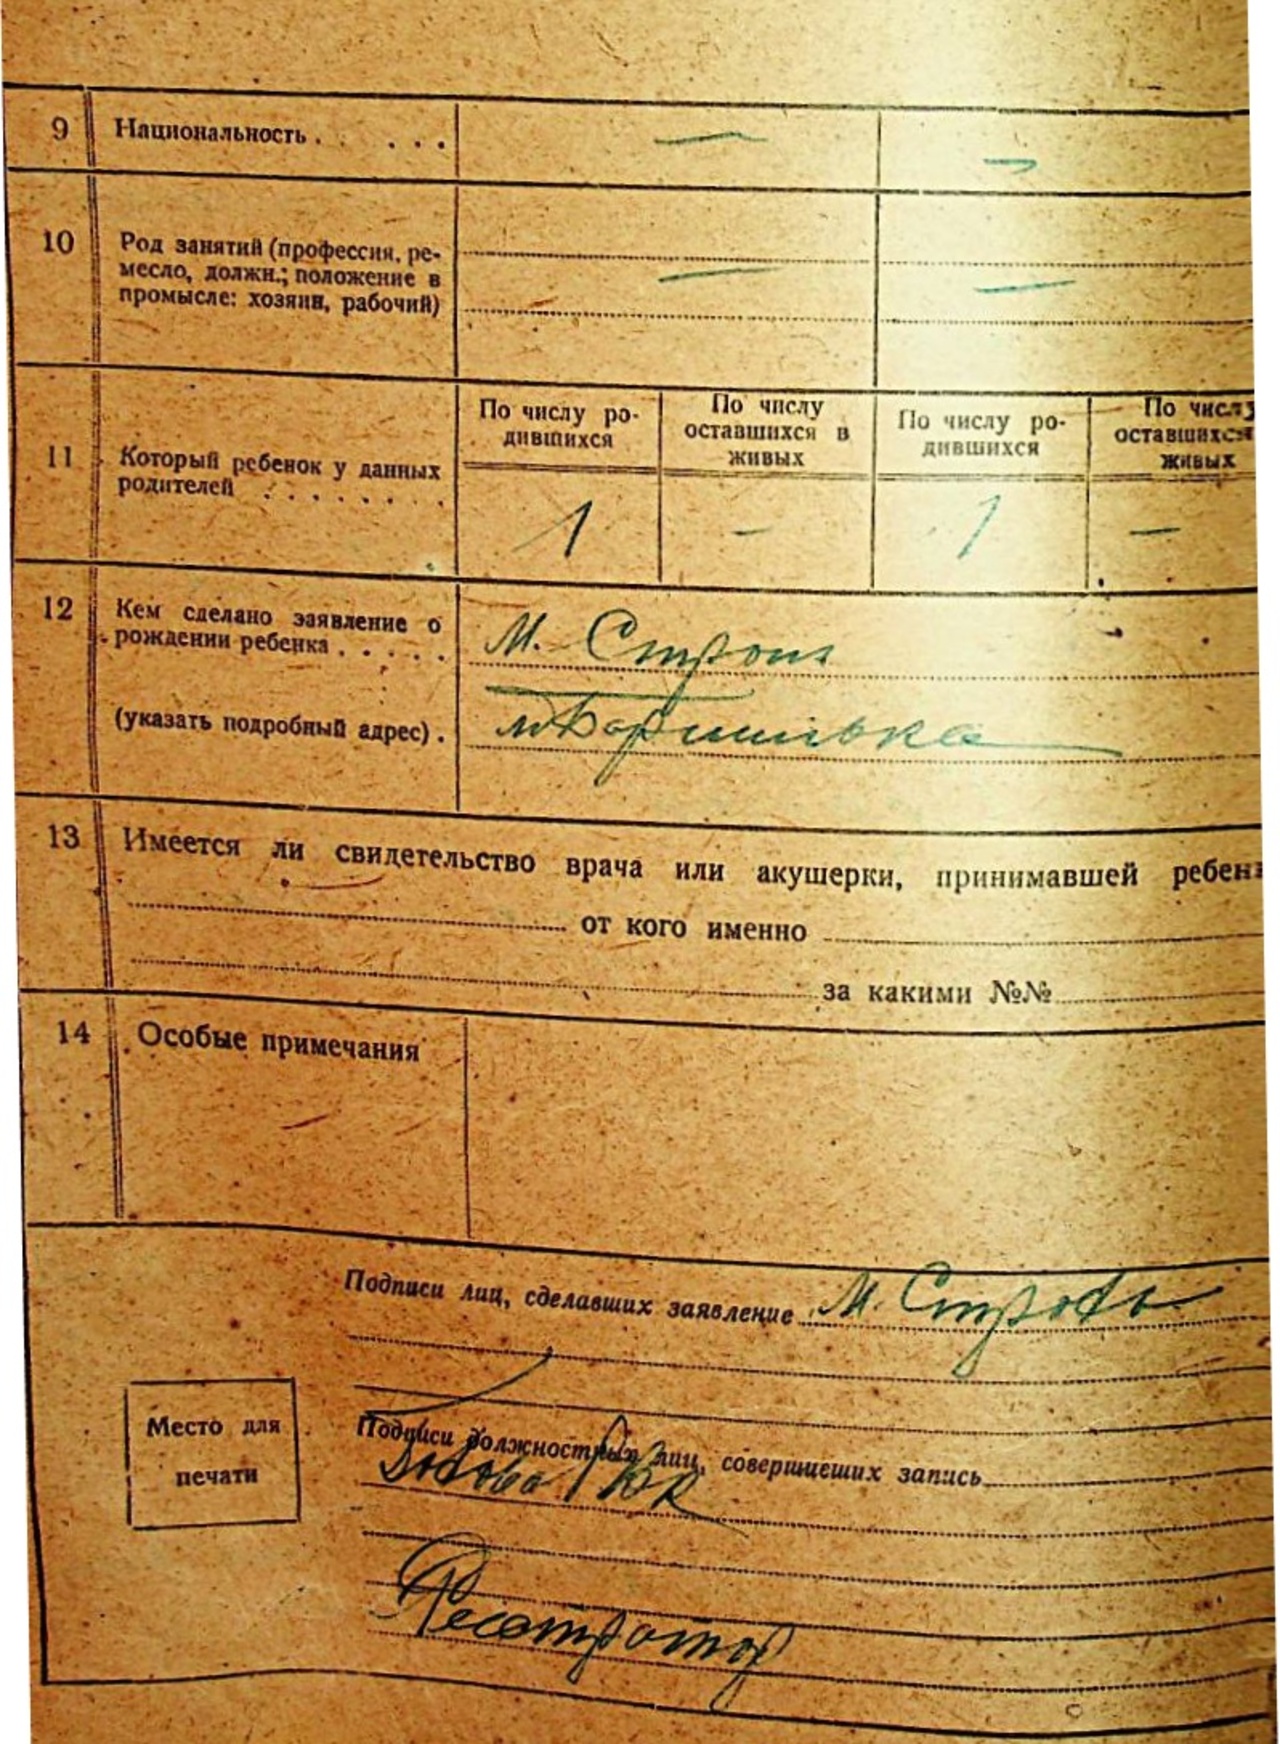 9 Национальность . . . . . — —
10 Род занятий (профессия, ре-
месло, должн.; положение в — —
промысле: хозяин, рабочий)
По числу ро-
дившихся
По числу
оставшихся в
живых
По числу ро-
дившихся
По числу
оставшихся
живых
11 Который ребенок у данных
родителей . . . . . . . 1 - 1 —
12 Кем сделано заявление о
рождении ребенка . . . . . М.
(указать подробный адрес) .
13 Имеется ли свидетельство врача или акушерки, принимавшей ребен
от кого именно
за какими №№
14 Особые примечания
Подписи лиц, сделавших заявление М.
Место для
печати
Подписи должностных лиц, совершивших запись